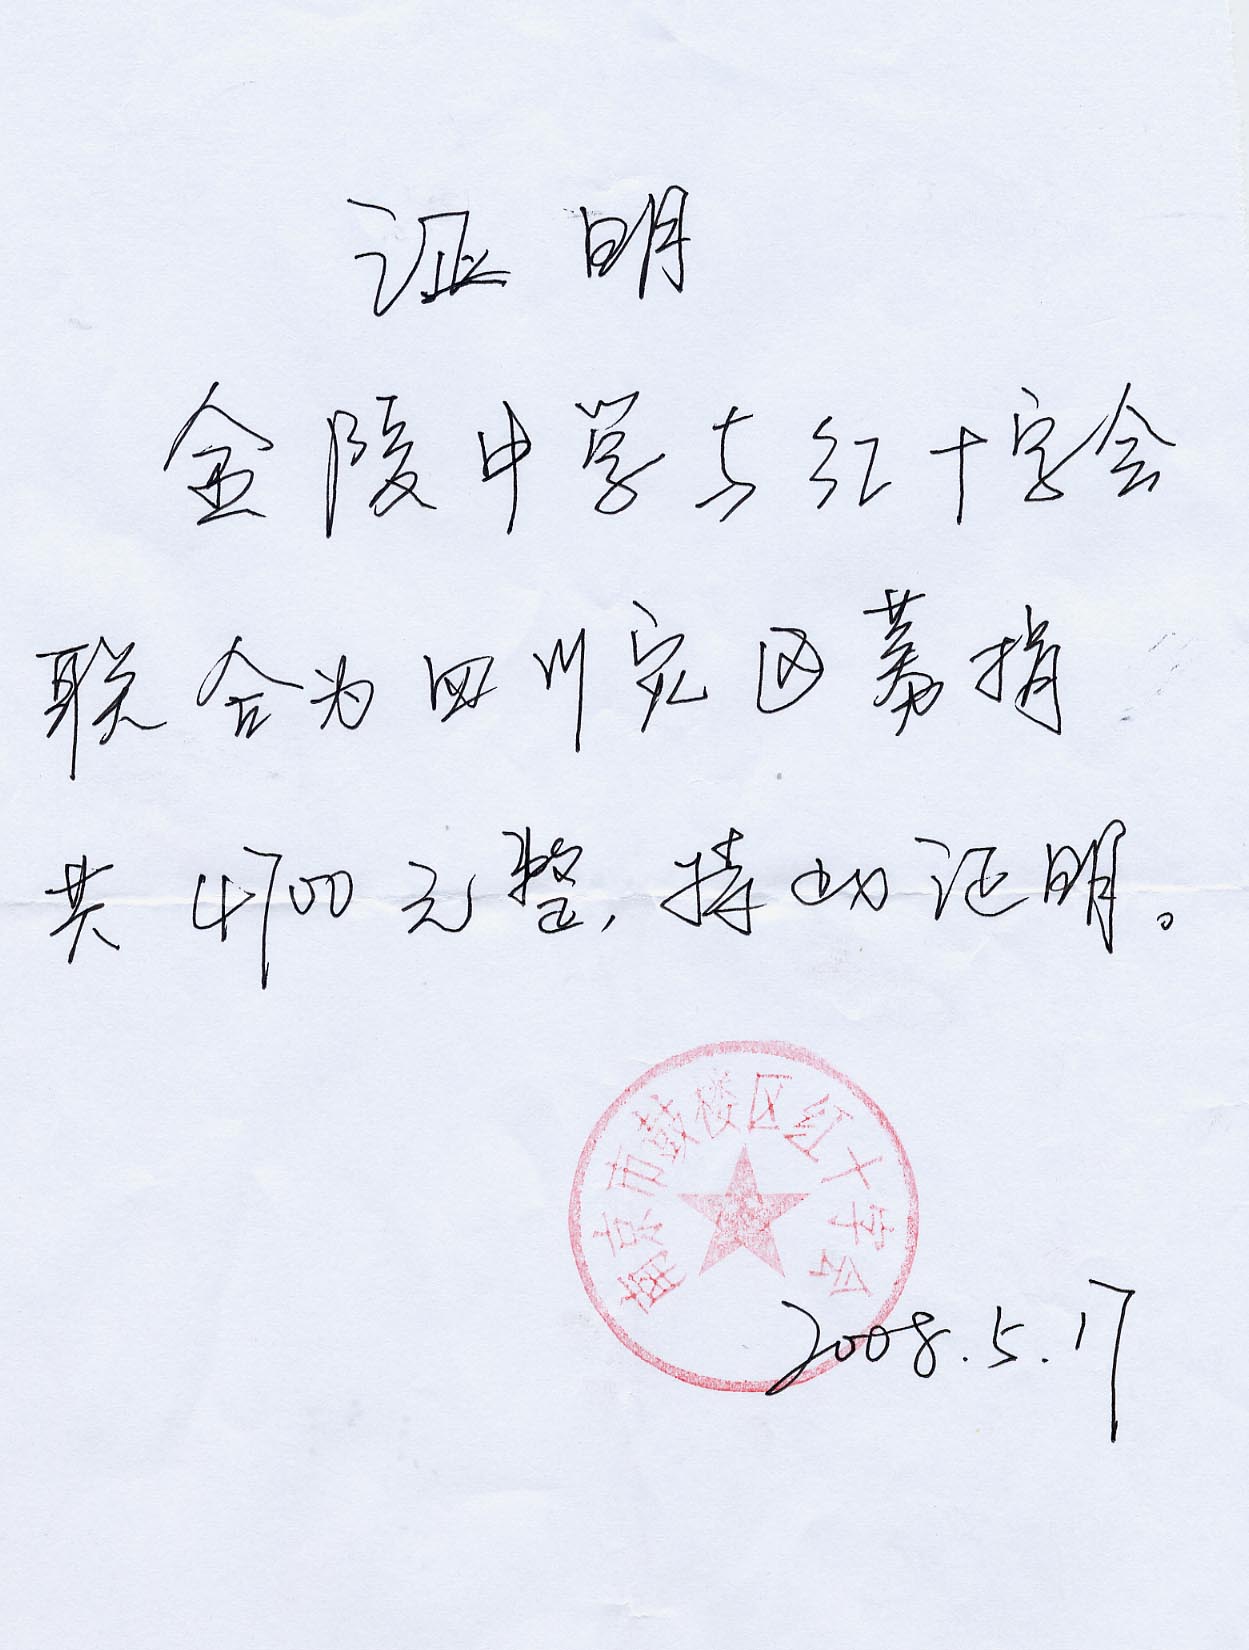 证明
金陵中学与红十字会
联合为四川灾区募捐
共4700元整，特此证明。
南京市鼓楼区红十字会
2008.5.17